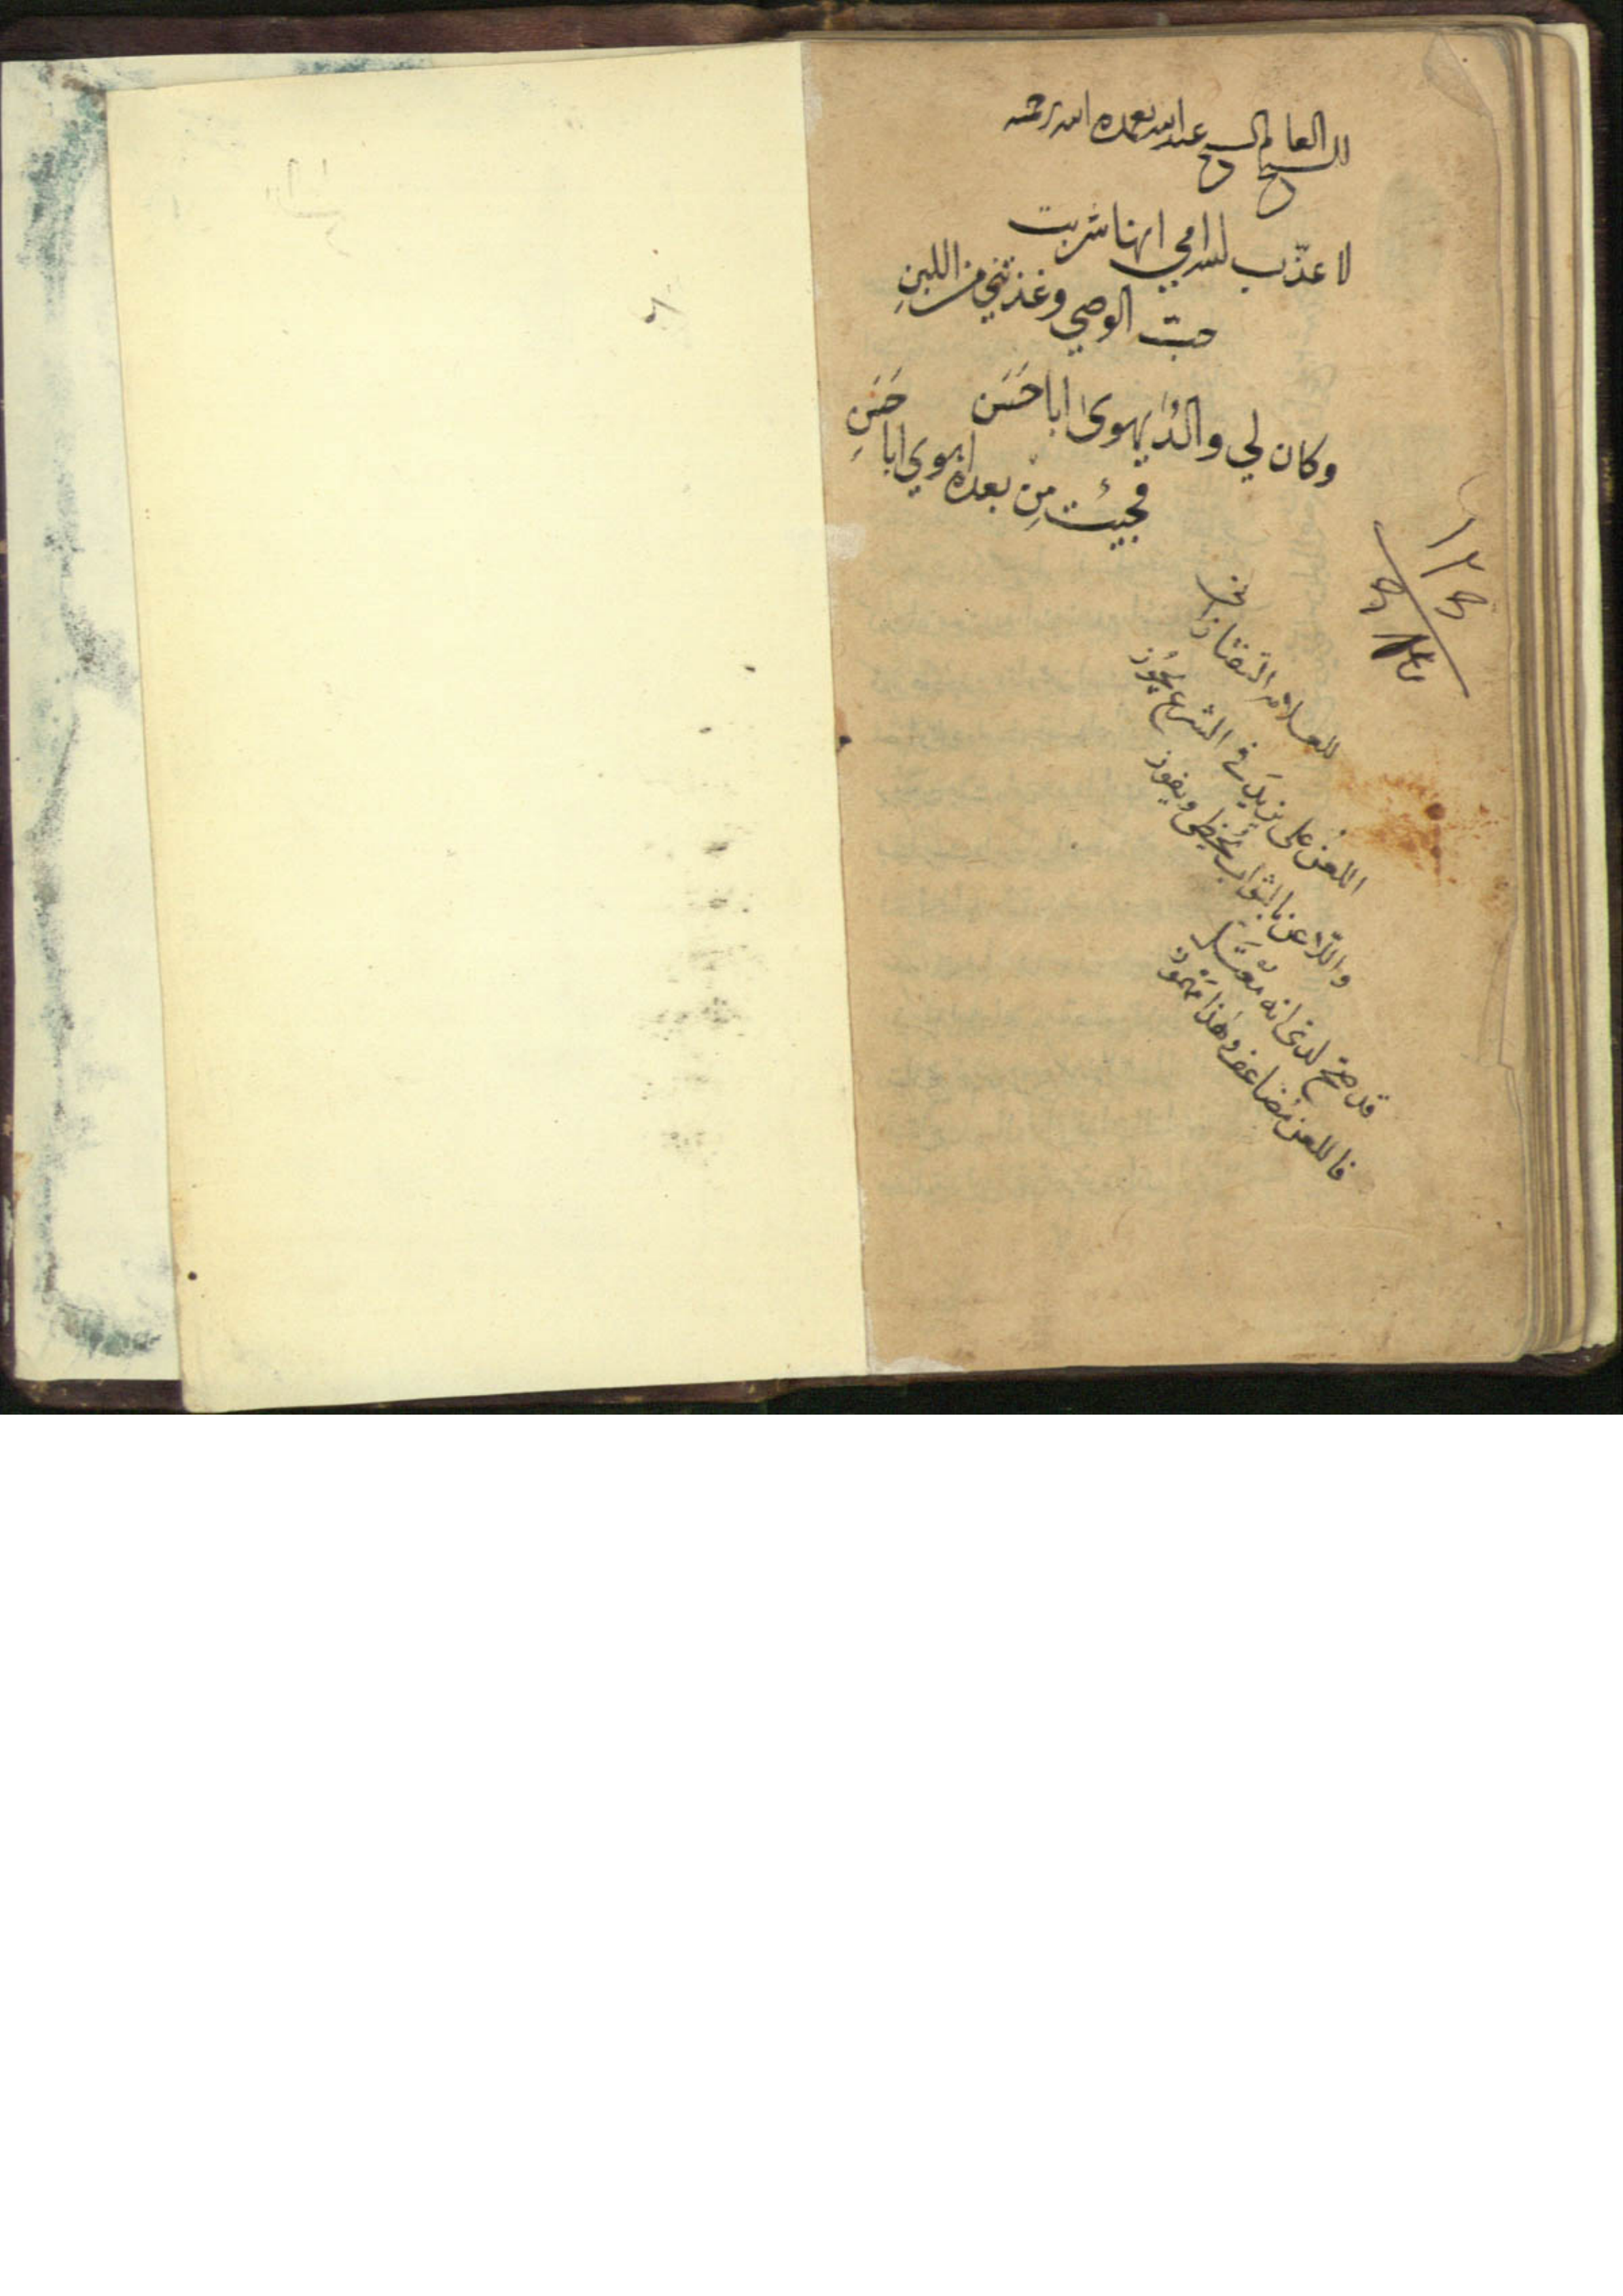 للشيخ العالم الشيخ عبد الله تغمده الله برحمته
لا عذّب الله امي انها شربت
حبّ الوصي وغذتني من اللبنِ
وكان لي والدٌ يهوى ابا حَسَن
فجيئت مِن بعده اهوي ابا حَسَنِ
للعلامه التفتازاني
اللعن على يزيد في الشرع يجوز
واللّاعن بالثواب يحظى ويفوز
قد صحّ لدي انه معتلّ
فاللعن مضاعف وهذا مهموز